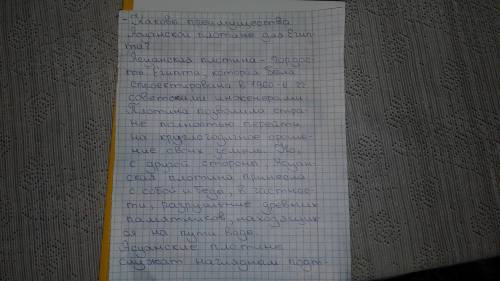 - Каковы преимущества
Асуанской плотины для Егип-
та?
Асуанская плотина - гордос-
ть Египта, которая была
спроектирована в 1960-е гг
советскими инженерами.
Плотина позволила стра-
не полностью перейти
на круглогодичное ороше-
ние своих земель. Но,
с другой стороны Асуан-
ская плотина принесла
с собой и беды, в частнос-
ти, разрушение древних
памятников, находящих-
ся на пути воды.
Асуанские плотине
служат наглядным подт-